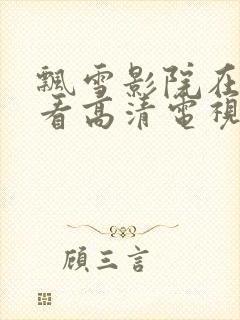 飄雪影院在
看高清電視
顧三言